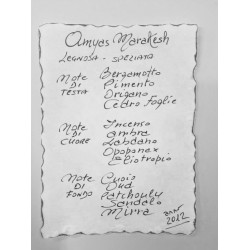 Amyas Marakesh
LEGNOSA - SPEZIATA
NOTE DI TESTA
Bergamotto
Pimento
Origano
Cedro Foglie
NOTE DI CUORE
Incenso
ambra
Labdano
Opoponax
Eliotropio
NOTE DI FONDO
Cuoio
Oud
Patchouly
Sandalo
Mirra
2012